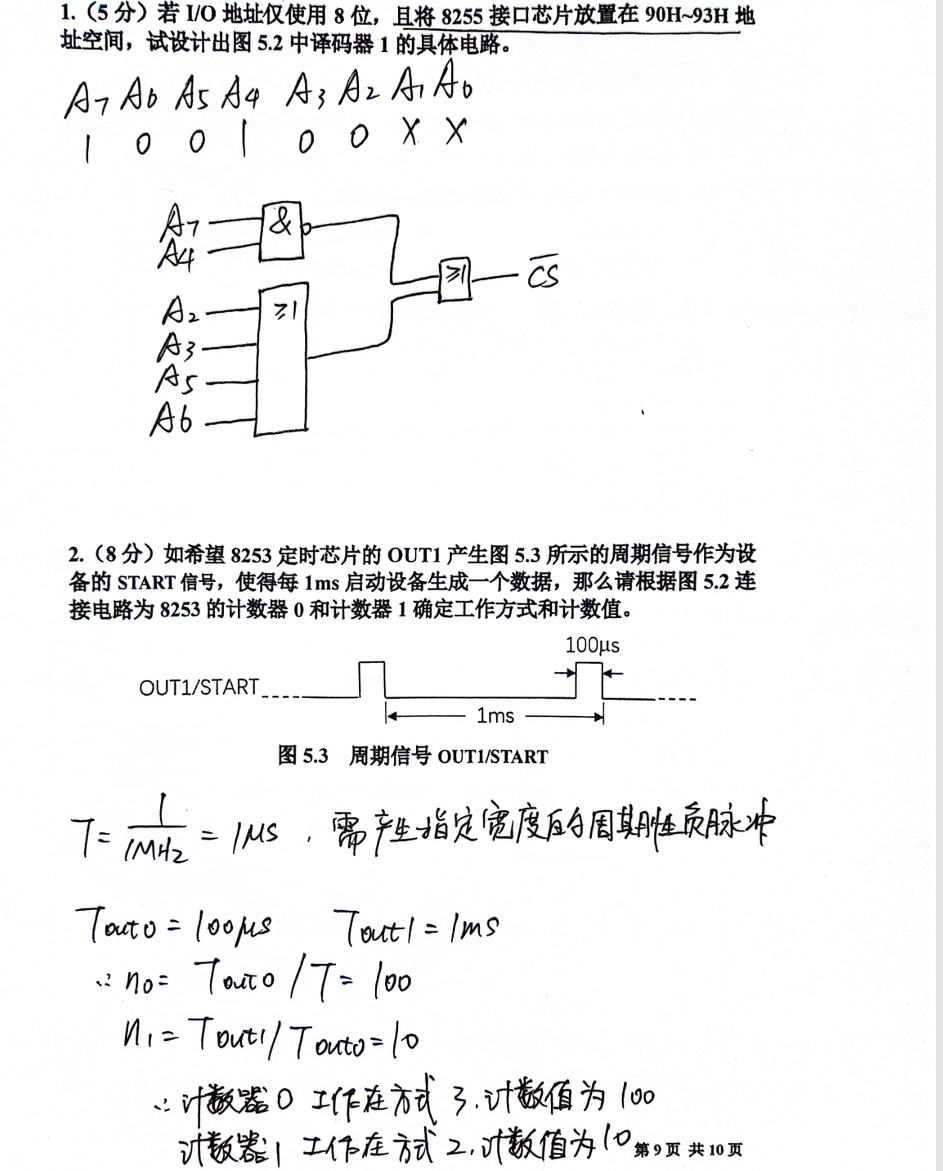 1.（5 分）若 I/O 地址仅使用 8 位，且将 8255 接口芯片放置在 90H~93H 地
址空间，试设计出图 5.2 中译码器 1 的具体电路。
A7 A6 A5 A4 A3 A2 A1 A0
1 0 0 1 0 0 X X
A7 &
A4
≥1 CS̅
A2 ≥1
A3
A5
A6
2.（8 分）如希望 8253 定时芯片的 OUT1 产生图 5.3 所示的周期信号作为设
备的 START 信号，使得每 1ms 启动设备生成一个数据，那么请根据图 5.2 连
接电路为 8253 的计数器 0 和计数器 1 确定工作方式和计数值。
100μs
OUT1/START
1ms
图 5.3 周期信号 OUT1/START
T= 1/1MHz = 1μs ，需产生指定宽度的周期性负脉冲
Tout0 = 100μs Tout1 = 1ms
∴ n0= Tout0 / T= 100
n1= Tout1/ Tout0=10
∴ 计数器 0 工作在方式 3.计数值为 100
计数器1 工作在方式 2,计数值为10
第 9 页 共 10 页